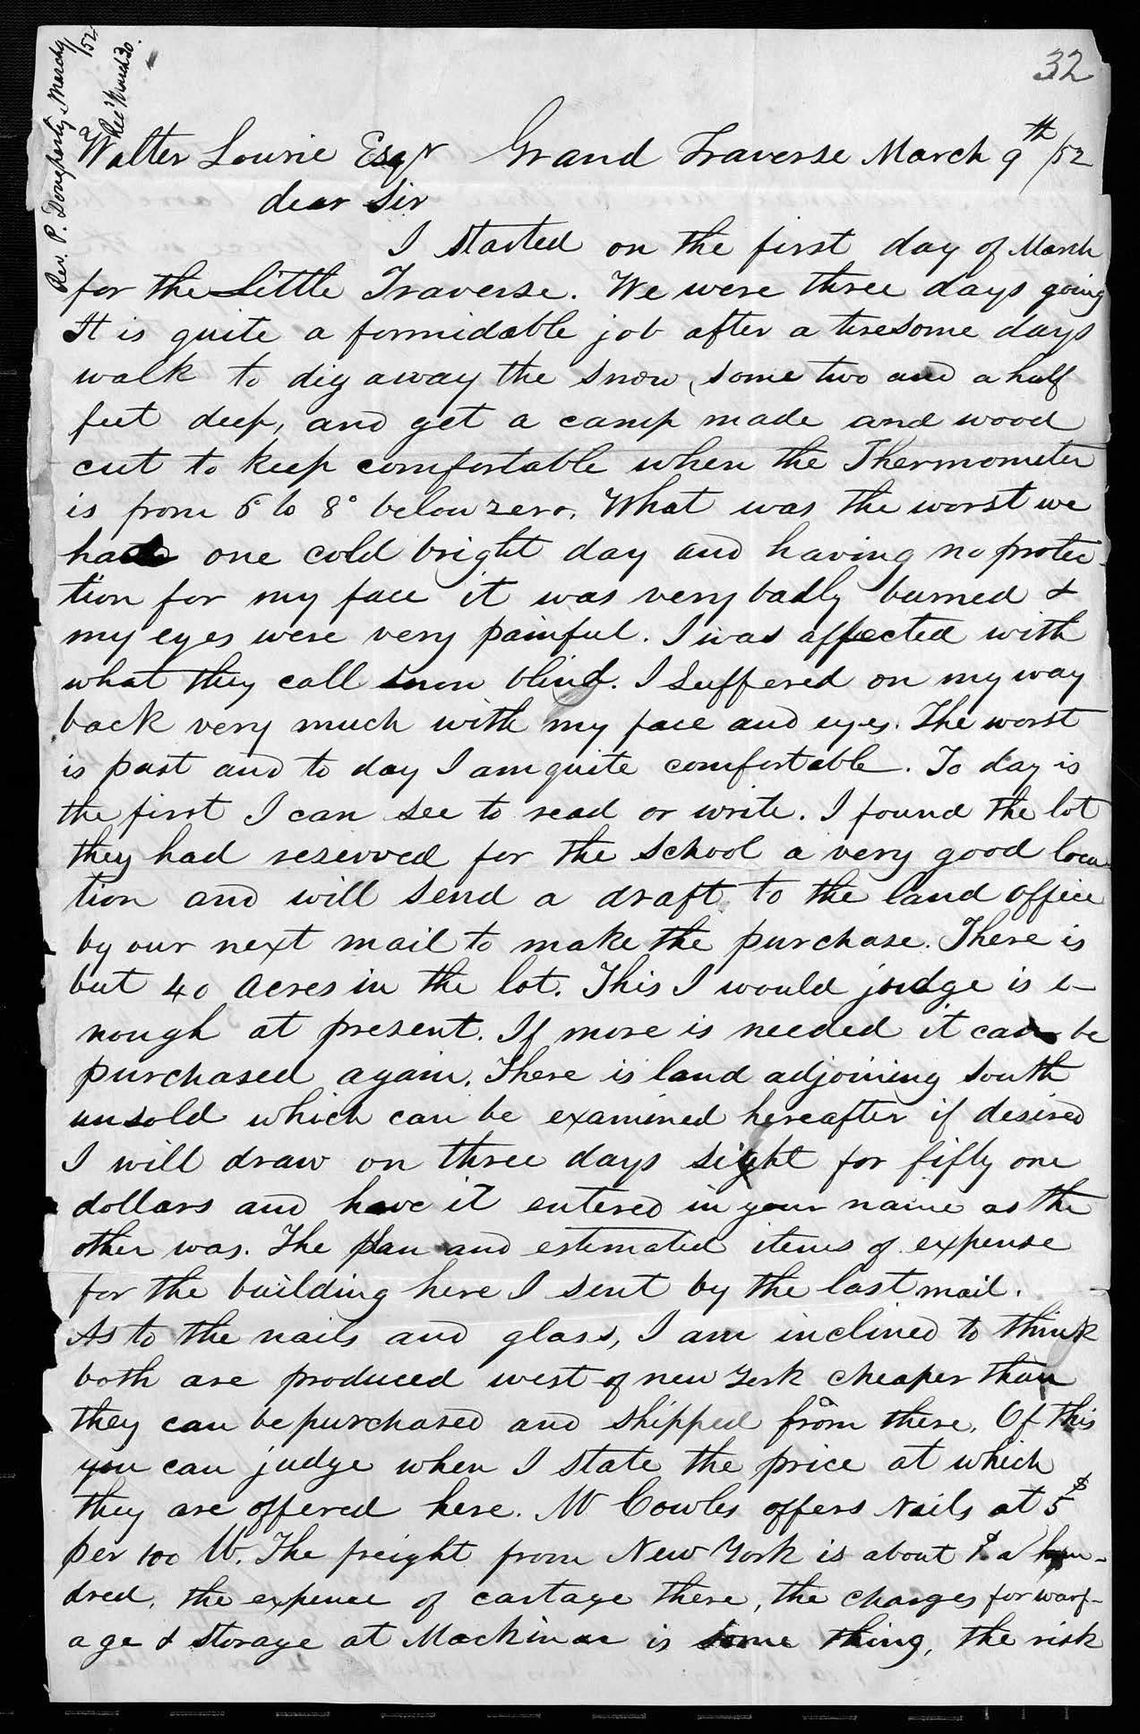 32
Rev. P. Dougherty March 9
/52
Rec'd March 30.
Walter Lowrie Esqr Grand Traverse March 9th /52
dear Sir
I started on the first day of March
for the Little Traverse. We were three days going
It is quite a formidable job after a tiresome days
walk to dig away the snow, some two and a half
feet deep, and get a camp made and wood
cut to keep comfortable when the Thermometer
is from 6° to 8° below zero. What was the worst we
had one cold bright day and having no protec-
tion for my face it was very badly burned &
my eyes were very painful. I was affected with
what they call snow blind. I suffered on my way
back very much with my face and eyes. The worst
is past and to day I am quite comfortable. To day is
the first I can see to read or write. I found the lot
they had reserved for the school a very good loca-
tion and will send a draft to the land office
by our next mail to make the purchase. There is
but 40 acres in the lot. This I would judge is e-
nough at present. If more is needed it can be
purchased again. There is land adjoining south
unsold which can be examined hereafter if desired
I will draw on three days sight for fifty one
dollars and have it entered in your name as the
other was. The plan and estimated items of expense
for the building here I sent by the last mail.
As to the nails and glass, I am inclined to think
both are produced west of new York cheaper than
they can be purchased and shipped from there. Of this
you can judge when I state the price at which
they are offered here. Mr Cowles offers Nails at 5$
per 100 lb. The freight from New York is about a hun-
dred, the expence of cartage there, the charges for warf-
age & storage at Mackinac is some thing, the risk